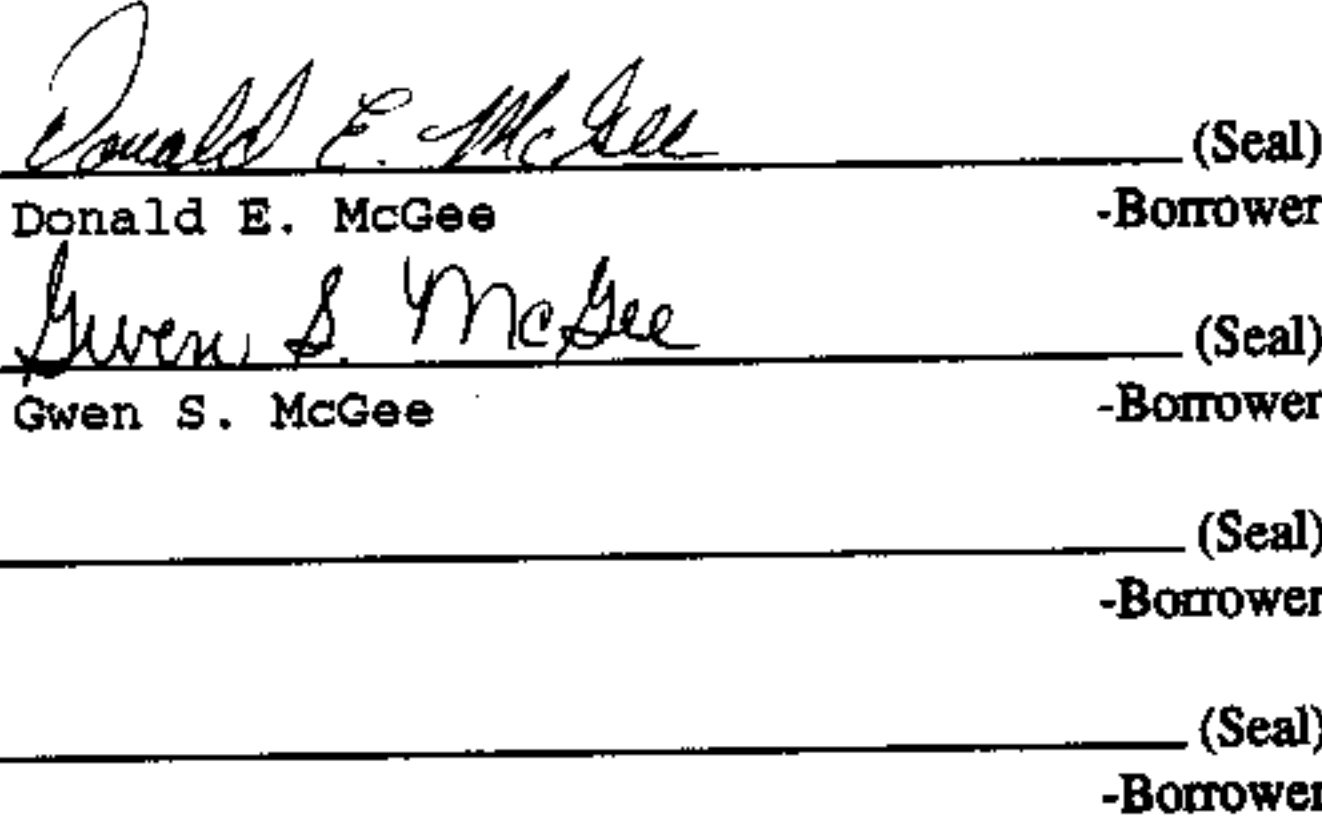 Donald E. McGee (Seal)
Donald E. McGee -Borrower
Gwen S. McGee (Seal)
Gwen S. McGee -Borrower
(Seal)
-Borrower
(Seal)
-Borrower